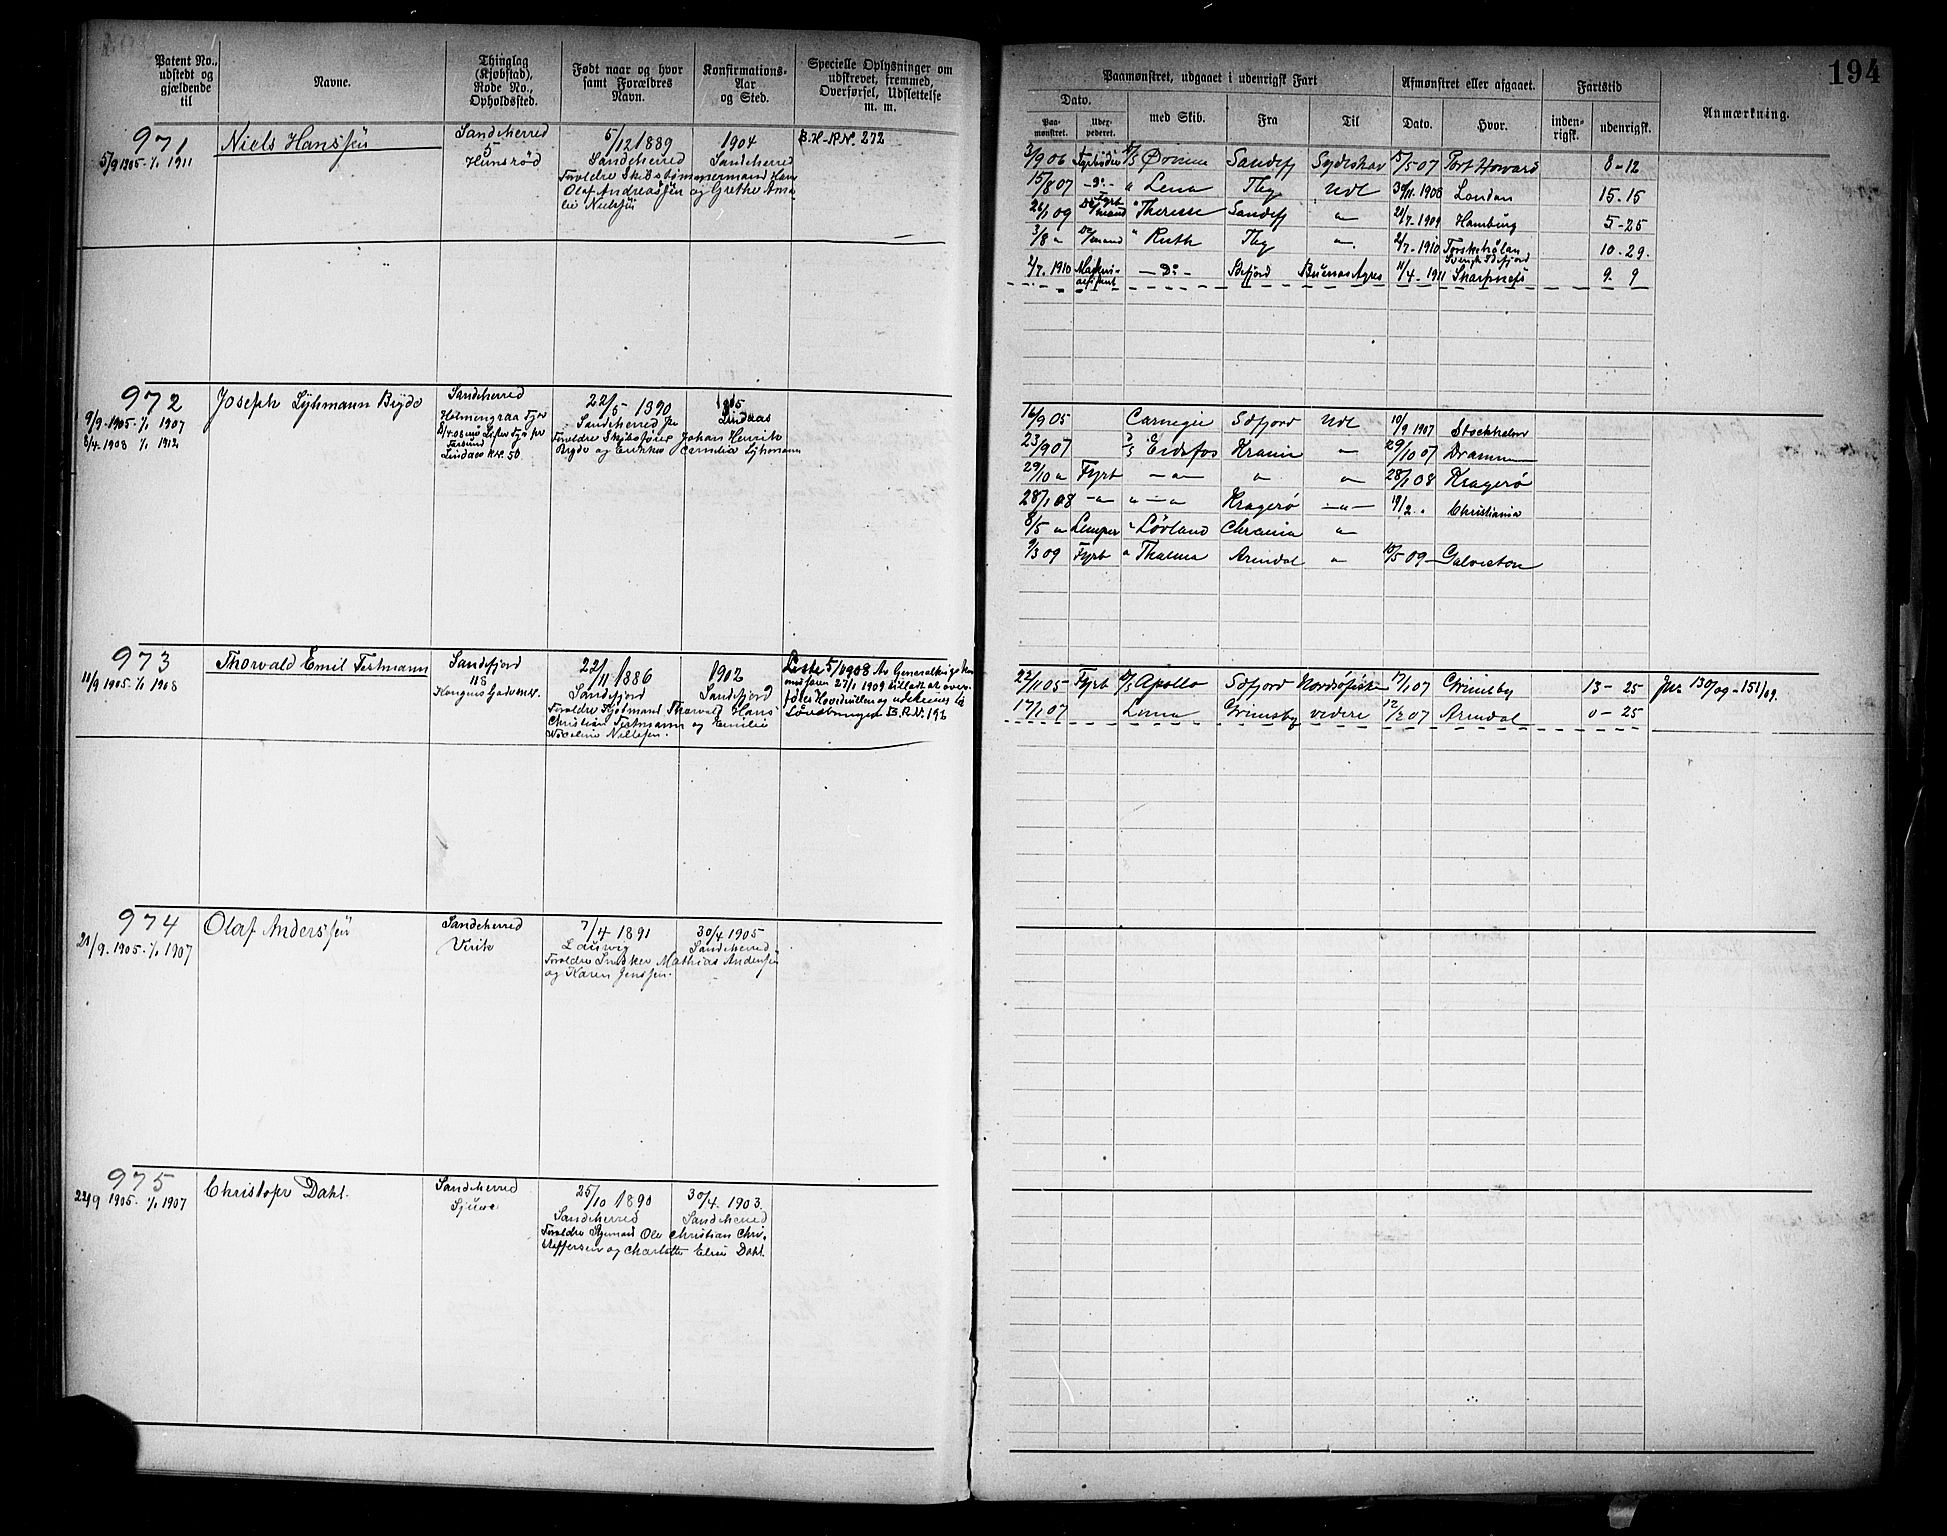 194
Patent No., udstedt og gjældende til
Navne.
Thinglag (Kjøbstad), Rode No., Opholdssted.
Født naar og hvor samt Forældres Navn.
Konfirmations-Aar og Sted.
Specielle Oplysninger om udskrevet, fremmed, Overførsel, Udslettelse m. m.
Paamønstret, udgaaet i udenrigsk Fart
Afmønstret eller afgaaet.
Fartstid
Anmærkning.
Dato.
Paa-mønstret.
med Skib.
Fra
Til
Dato.
Hvor.
inden-rigsk.
udenrigsk.
971
5/9 1905 - 1/1 1911
Niels Hanssen
Sandeherred
5
Hunsrød
5/12 1889
Sandeherred
1904
Sandeherred
Foreldre Skibstømmermand Hans
Olaf Andreassen og Grethe Ama
lie Nielsen
B.H-R.N. 272
3/9 06 Sandefj Sydishav 15/5 07 Port Howard 8-12
15/8 07 -Do- " Lena Tbg Udl 30/11-1908 London 15-15
26/1 09 " Therese Sandefj " 21/7-1909 Hamburg 5-25
3/8 " " Ruth Tbg " 2/7-1910 10-29.
2/7.1910 -Do- Buenos Ayres 11/4-1911 Skarpnes 9-9
972
9/9 1905 - 1/1 1907
8/4 1908 1/1 1912
Joseph Lyhmann Brydo
Sandeherred
Lindaas Nr. 50
22/5 1890
Sandeherred
1905
Lindaas
Foreldre Skibsfører Johan Henrik
Camilla Lyhmann
16/9 05 Carnegie Sdfjord Udl 10/9 1907 Stockholm
23/9 07 D/S Eidsfos Krania " 29/10 07 Drammen
29/10 " Fyrb -"- " " 28/1 08 Kragerø
28/1 08 -"- "-" Kragerø -"- 19/2 " Christiania
8/5 " Lemper " Løvland Chrania "
9/3 09 Fyrb " Thalma Arendal " 10/5 09 Galveston
973
11/9 1905 - 1/1 1908
Thorvald Emil Tertmann
Sandefjord
118
22/11 1886
Sandefjord
1902
Sandefjord
Foreldre Kjøbmand Thorvald Hans
Christian Tertmann og Emilie
Nielsen.
27/1 1909 tilladt at over-
føres Hovedrullen og udskrives til
B.R.N. 196
22/11 05 Fyrb D/S Apollo Sdfjord Nordsøfiske 17/1 07 Grimsby 13-25 Jnr 130/09 - 151/09.
17/1 07 Lena Grimsby videre 12/2 07 Arendal 0-25
974
21/9 1905 - 1/1 1907
Olaf Anderssen
Sandeherred
Virik
7/4 1891
Laurvig
30/4 1905
Sandeherred
Foreldre Snekker Mathias Andersen
og Karen Jenssen.
975
22/9 1905 - 1/1 1907
Christofer Dahl.
Sandeherred
25/10 1890
Sandeherred
30/4 1903.
Sandeherred
Foreldre Sjømand Ole Christian Chri-
stoffersen og Charlotte Elise Dahl.